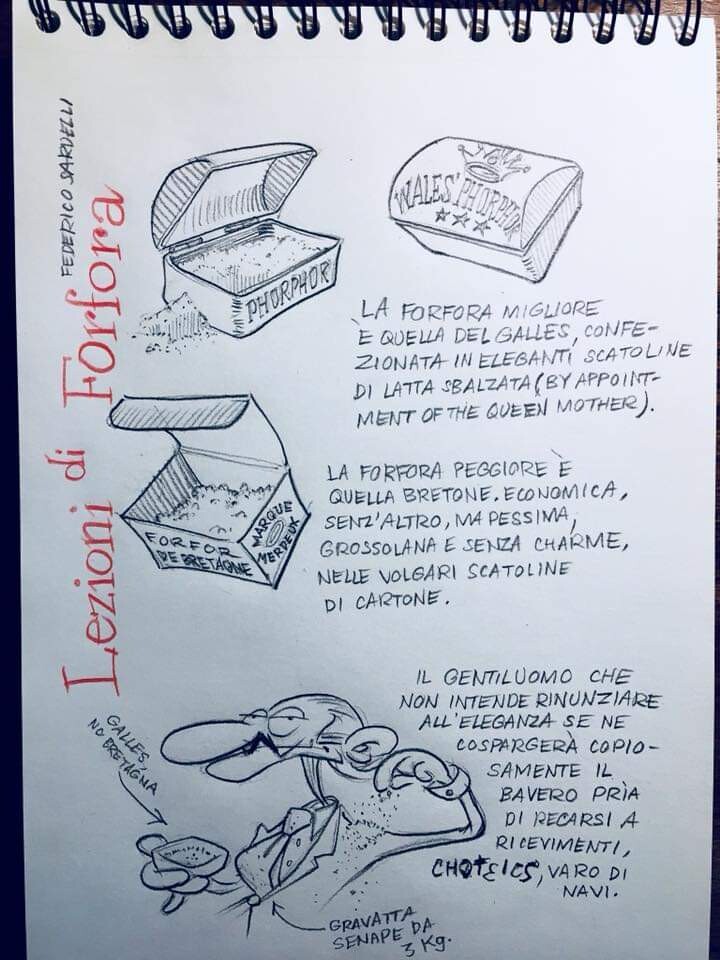 FEDERICO SARDELLI
Lezioni di Forfora
PHORPHOR
WALES' PHORPHOR
LA FORFORA MIGLIORE
È QUELLA DEL GALLES, CONFE-
ZIONATA IN ELEGANTI SCATOLINE
DI LATTA SBALZATA (BY APPOINT-
MENT OF THE QUEEN MOTHER).
FORFOR
DE BRETAGNE
MARQUE
MERDEUX
LA FORFORA PEGGIORE È
QUELLA BRETONE. ECONOMICA,
SENZ'ALTRO, MA PESSIMA,
GROSSOLANA E SENZA CHARME,
NELLE VOLGARI SCATOLINE
DI CARTONE.
IL GENTILUOMO CHE
NON INTENDE RINUNZIARE
ALL'ELEGANZA SE NE
COSPARGERÀ COPIO-
SAMENTE IL
BAVERO PRÌA
DI RECARSI A
RICEVIMENTI,
VARO DI
NAVI.
GALLES,
NO BRETAGNA
GRAVATTA
SENAPE DA
3 Kg.